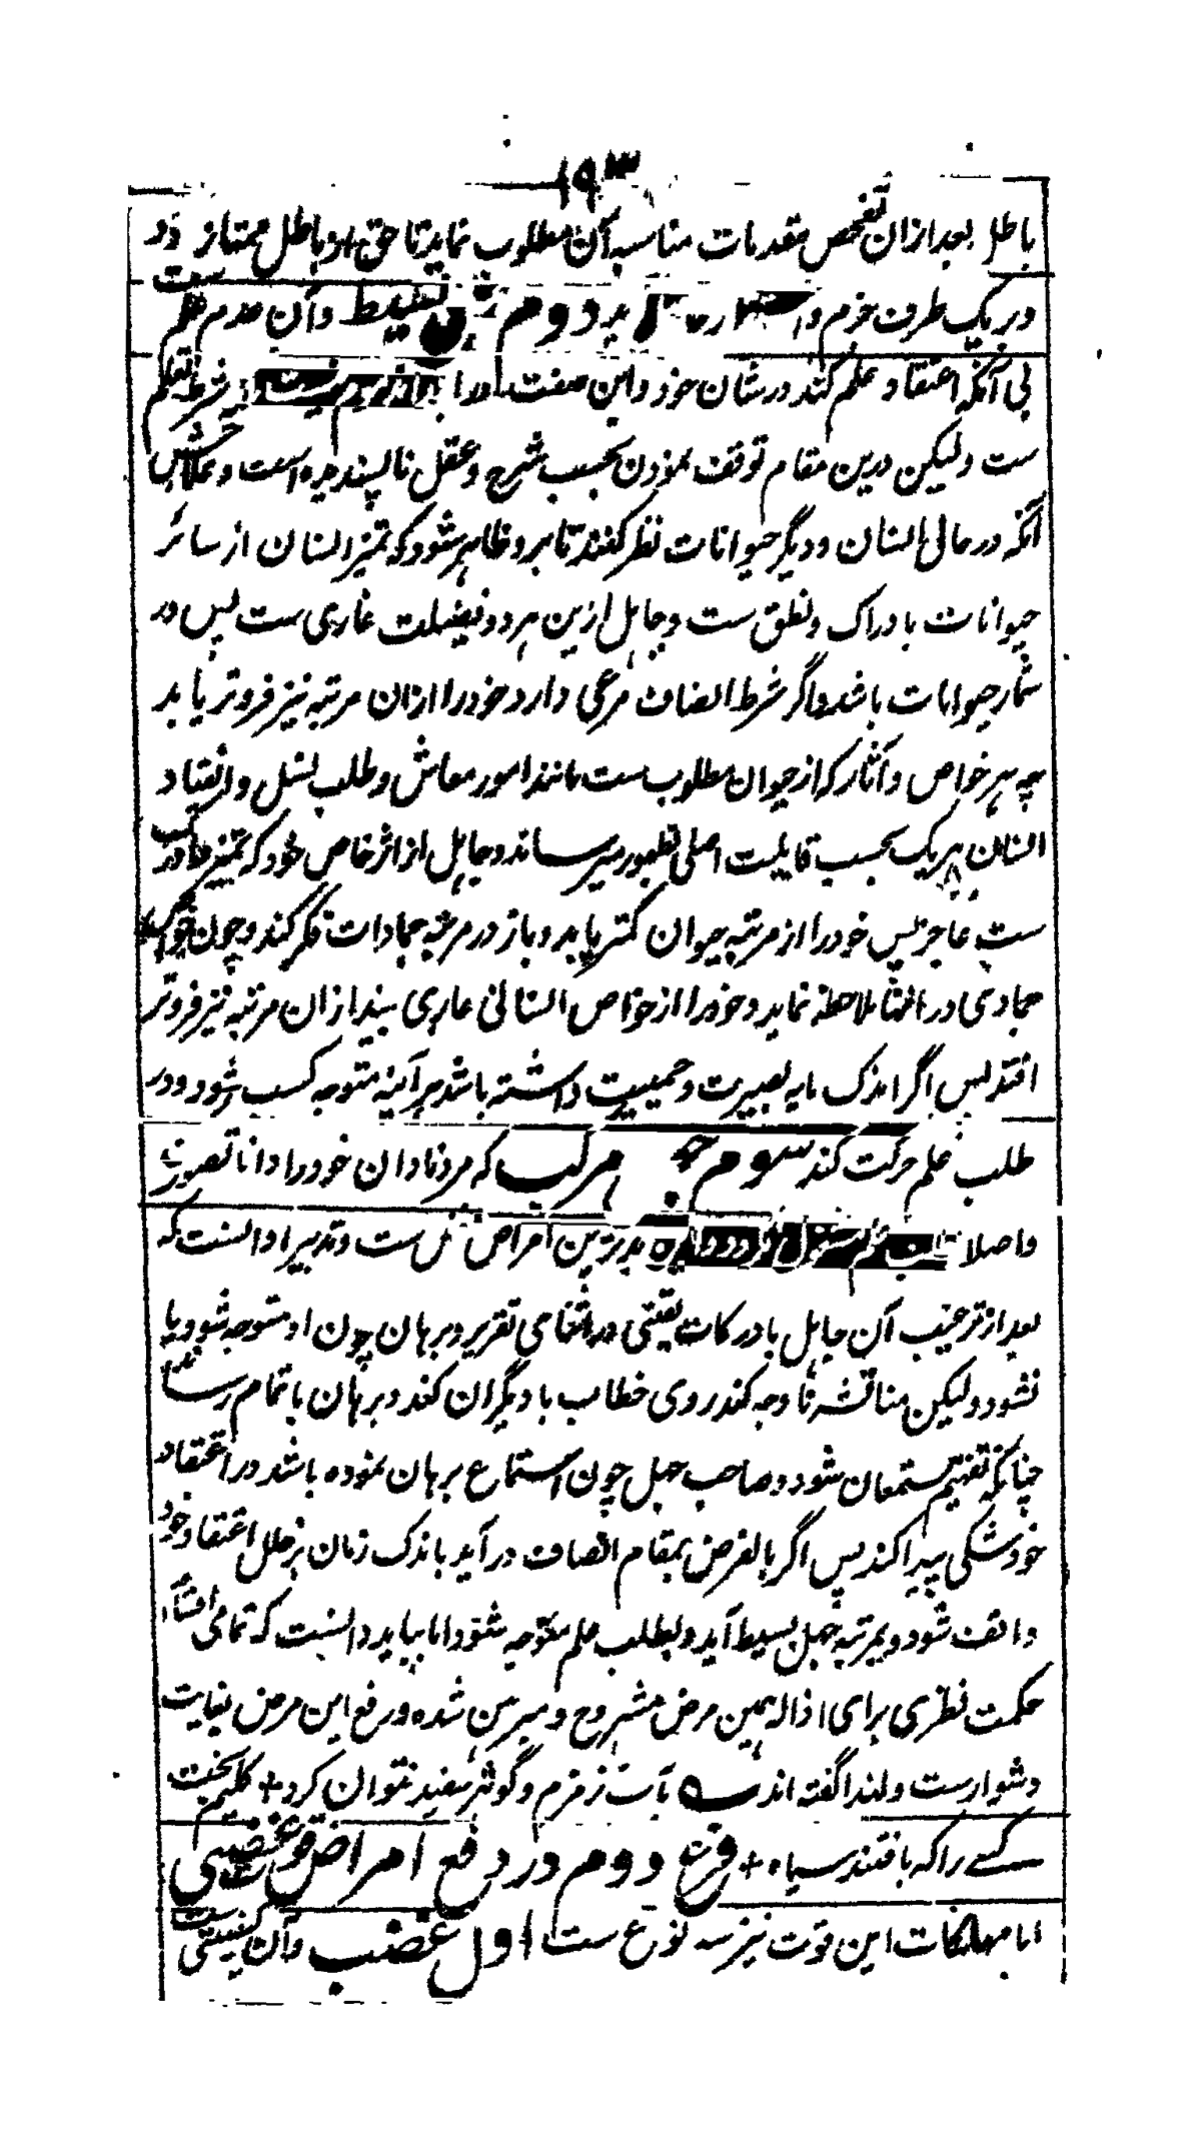 ۱۹۳
باطل بعد ازان تفحص مقدمات مناسبه آن مطلوب نماید تا حق از باطل ممتاز
و بر یک طرف جزم دوم بسیط و آن عدم علم ست
بی آنکه اعتقاد علم کند در شان خود و این صفت شرط تعلم
ست ولیکن درین مقام توقف نمودن بحسب شرع و عقل ناپسندیده است و علاجش
آنکه در حال انسان و دیگر حیوانات نظر کنند تا برو ظاهر شود که تمیز انسان از سائر
حیوانات بادراک و نطق ست و جاهل ازین هر دو فضیلت عاری ست پس در
شمار حیوانات باشد و اگر شرط انصاف مرعی دارد خود را ازان مرتبه نیز فروتر یابد
چه هر خواص و آثار که از حیوان مطلوب ست مانند امور معاش و طلب نسل و انقیاد
انسان هر یک بحسب قابلیت اصلی بظهور میرساند و جاهل از اثر خاص خود که تمیز
ست عاجز پس خود را از مرتبه حیوان کمتر یابد و باز در مرتبه جمادات فکر کند و چون خواص
جمادی در آنها ملاحظه نماید و خود را از خواص انسانی عاری بیند ازان مرتبه نیز فروتر
افتد پس اگر اندک مایه بصیرت و حمیت داشته باشد هر آینه متوجه کسب شود و در
طلب علم حرکت کند سوم جهل مرکب که مرد نادان خود را دانا تصور
و اصلا بدترین امراض ست و تدبیر او آنست که
بعد از ترغیب آن جاهل بادراکات یقینی در اثنای تقریر و برهان چون او متوجه شود یا
نشود ولیکن مناقشه با وجه کند روی خطاب با دیگران کند و برهان باتمام رساند
چنانکه تفهیم مستمعان شود و صاحب جهل چون استماع برهان نموده باشد در اعتقاد
خود شکی پیدا کند پس اگر بالفرض بمقام انصاف در آید باندک زمان بر خلل اعتقاد خود
واقف شود و بمرتبه جهل بسیط آید و بطلب علم متوجه شود اما بباید دانست که تمامی اقسام
حکمت نظری برای ازاله همین مرض مشروح و مبرهن شده و رفع این مرض بغایت
دشوارست و لهذا گفته اند ؎ بآب زمزم و کوثر سفید نتوان کرد + گلیم بخت
کسے را که بافتند سیاه + فرع دوم در دفع امراض قوت غضبی
اما مهلکات این قوت نیز سه نوع ست اول غضب و آن کیفیتی ست